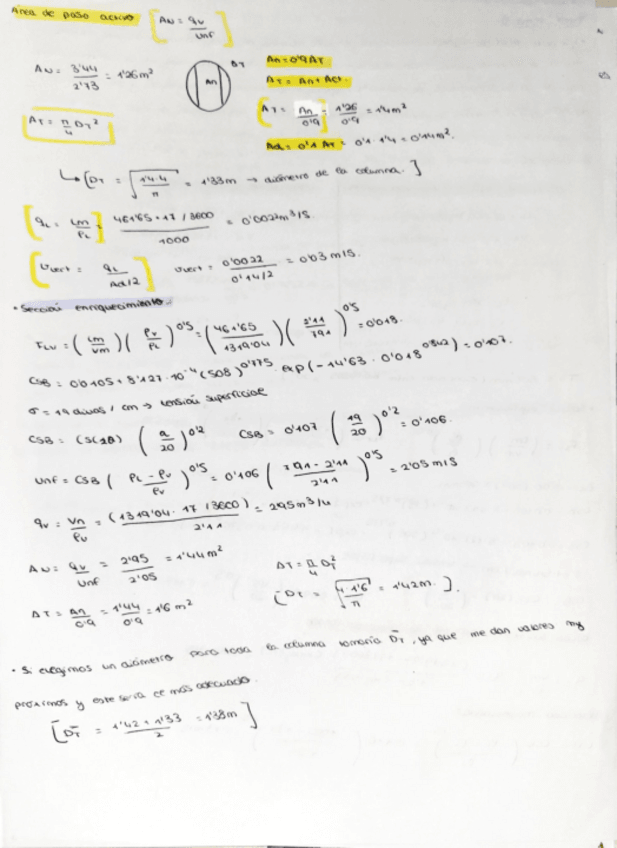 Área de paso activo [AN = qv / Unf]
AN = 3'44 / 2'73 = 1'26 m²
An
DT
An = 0'9 AT
AT = An + Ad.
[AT = An / 0'9] = 1'26 / 0'9 = 1'4 m²
AT = π/4 DT²
Ad = 0'1 AT = 0'1 · 1'4 = 0'14 m².
↳ [DT = √(1'4·4 / π) = 1'33 m → diámetro de la columna.]
[qL = Lm / ρL] = 461'65 · 17 / 3600 / 1000 = 0'0022 m³/s.
[Uvert = qL / Ad/2] Uvert = 0'0022 / 0'14/2 = 0'03 m/s.
• Sección enriquecimiento.
FLV = (Lm / Vm) (ρv / ρL)^0'5 = (461'65 / 1319'04) (2'11 / 791)^0'5 = 0'018.
CSB = 0'0105 + 8'127 · 10⁻⁴ (508)^0'775 · exp(-14'63 · 0'018^0'842) = 0'107.
σ = 19 dinas / cm → tensión superficial
CSB = (σ / 20)^0'2 CSB = 0'107 · (19 / 20)^0'2 = 0'106.
Unf = CSB (ρL - ρv / ρv)^0'5 = 0'106 (791 - 2'11 / 2'11)^0'5 = 2'05 m/s
qv = Vn / ρv = (1319'04 · 17 / 3600) / 2'11 = 2'95 m³/s
AN = qv / Unf = 2'95 / 2'05 = 1'44 m²
AT = π/4 DT²
AT = An / 0'9 = 1'44 / 0'9 = 1'6 m²
[DT = √(4·1'6 / π) = 1'42 m.].
• Si elegimos un diámetro para toda la columna tomaría D̄T, ya que me dan valores muy
próximos y este sería el más adecuado.
[D̄T = 1'42 + 1'33 / 2 = 1'38 m]